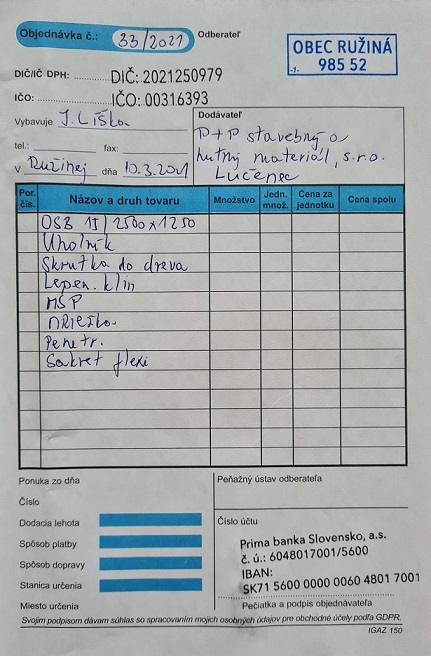 Objednávka č.: 33/2021
Odberateľ
OBEC RUŽINÁ
-1- 985 52
DIČ/IČ DPH: DIČ: 2021250979
IČO: IČO: 00316393
Vybavuje J. Líška
Dodávateľ
P+P stavebný a
hutný materiál, s.r.o.
Lučenec
tel.: fax:
V Ružinej dňa 10.3.2021
Por. čís. Názov a druh tovaru Množstvo Jedn. množ. Cena za jednotku Cena spolu
OSB 15 2500x1250
Uholník
Skrutka do dreva
Lepen. klin
MSP
Penetr.
Sakret flexi
Ponuka zo dňa
Peňažný ústav odberateľa
Číslo
Dodacia lehota
Číslo účtu
Spôsob platby
Spôsob dopravy
Stanica určenia
Prima banka Slovensko, a.s.
č. ú.: 6048017001/5600
IBAN:
SK71 5600 0000 0060 4801 7001
Miesto určenia
Pečiatka a podpis objednávateľa
Svojim podpisom dávam súhlas so spracovaním mojich osobných údajov pre obchodné účely podľa GDPR.
IGAZ 150